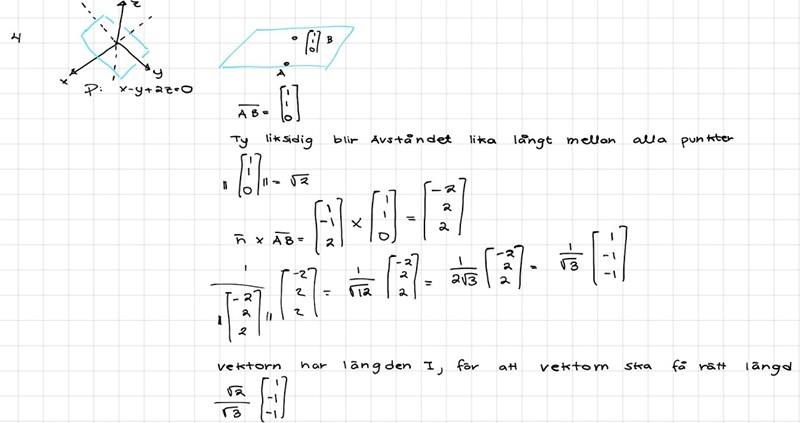 4
z
x
y
P: x-y+2z=0
[1 1 0] B
A
AB = [1 1 0]
Ty liksidig blir Avståndet lika långt mellan alla punkter
|| [1 1 0] || = √2
n̄ x AB = [1 -1 2] x [1 1 0] = [-2 2 2]
1 / || [-2 2 2] || [-2 2 2] = 1/√12 [-2 2 2] = 1/2√3 [-2 2 2] = 1/√3 [1 -1 -1]
vektorn har längden 1, för att vektorn ska få rätt längd
√2/√3 [1 -1 -1]